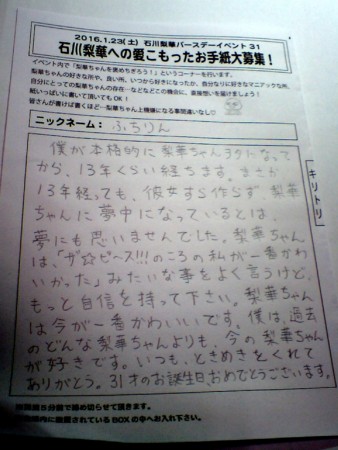 2016.1.23(土) 石川梨華バースデーイベント 31
石川梨華への愛こもったお手紙大募集！
イベント内で「梨華ちゃんを褒めちぎろう！」というコーナーを行います。
梨華ちゃんの好きな所や、良い所、いつから好きになったか、自分なりに好きなマニアックな所、
自分にとっての梨華ちゃんの存在…などなどこの機会に、直接想いを届けましょう！
絵いっぱいに書いて頂いてもOK！
皆さんが書けば書くほど…梨華ちゃん上機嫌になる事間違いなし♡
ニックネーム：ふちりん
キリトリ
僕が本格的に梨華ちゃんヲタになって
から、13年くらい経ちます。まさか
13年経っても、彼女すら作らず梨華
ちゃんに夢中になっているとは、
夢にも思いませんでした。梨華ちゃん
は、「ザ☆ピ〜ス!!!のころの私が一番かわ
いかった」みたいな事をよく言うけど、
もっと自信を持って下さい。梨華ちゃん
は今が一番かわいいです。僕は、過去
のどんな梨華ちゃんよりも、今の梨華ちゃん
が好きです。いつも、ときめきをくれて
ありがとう。31才のお誕生日、おめでとうございます。
5分前で締め切らせて頂きます。
内に設置されているBOXの中へお入れ下さい。